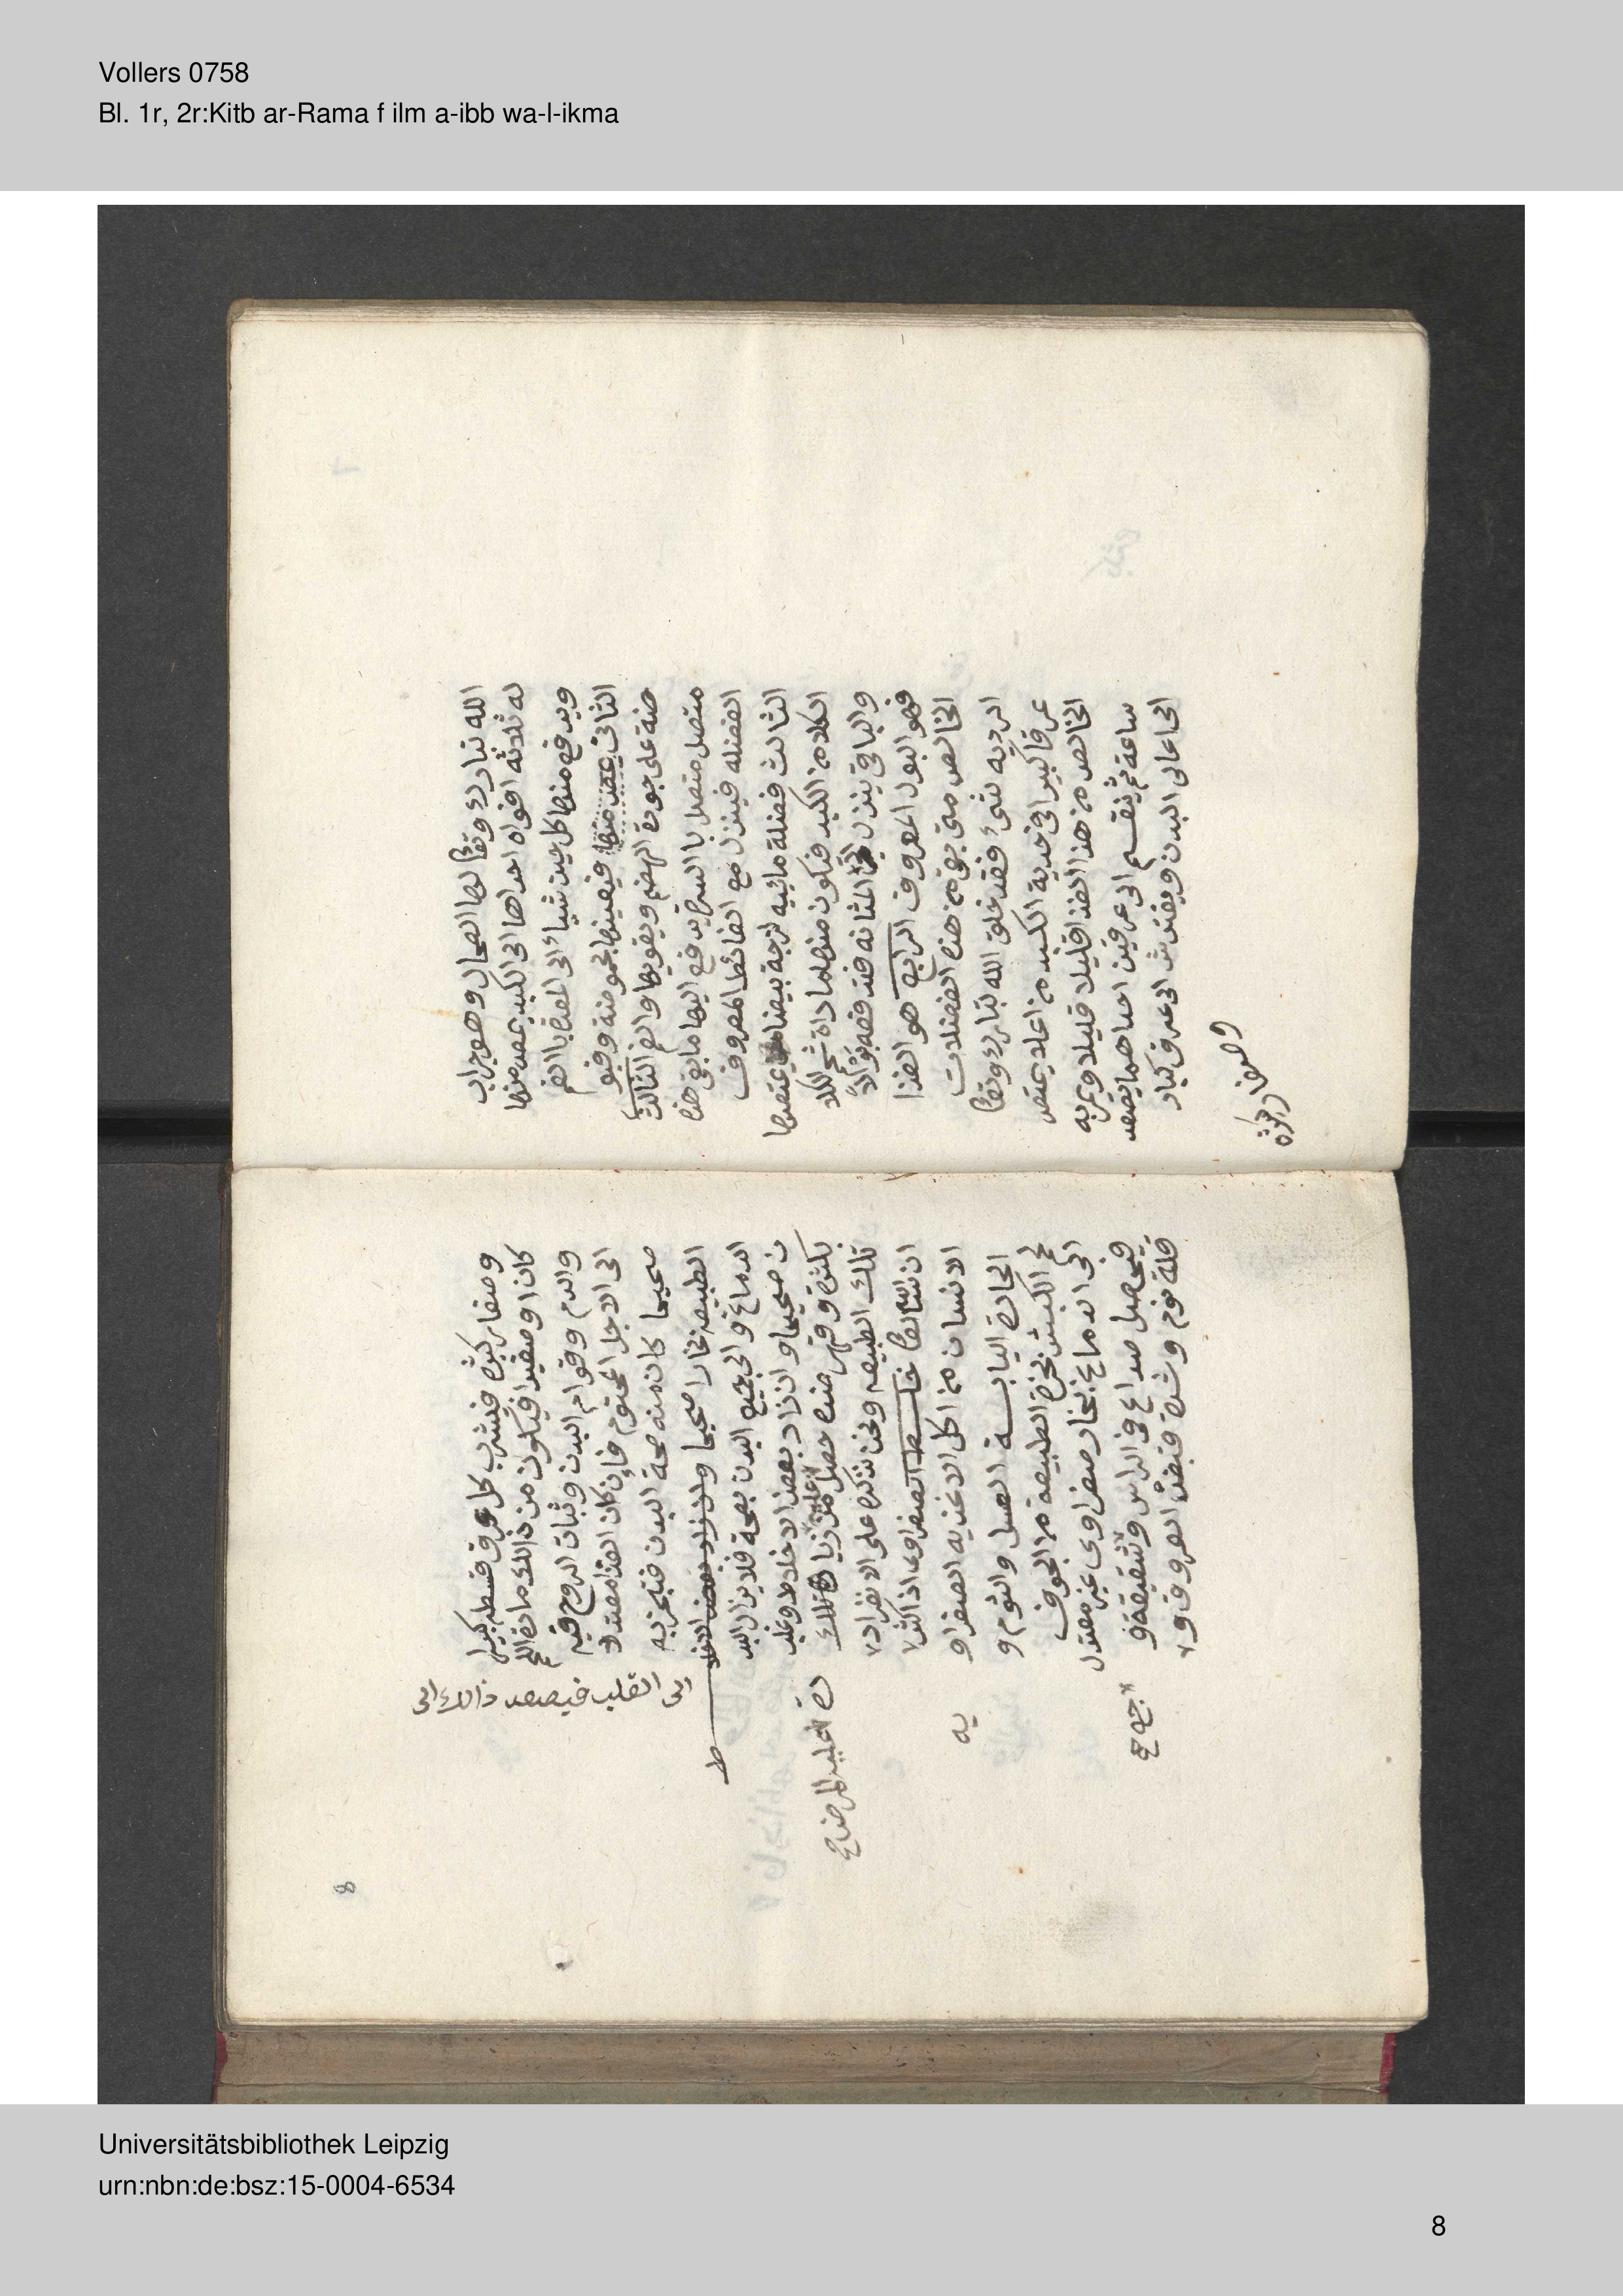 Vollers 0758
Bl. 1r, 2r:Kitb ar-Rama f ilm a-ibb wa-l-ikma
الله تبارك وتعا لها الطحال وهو جراب
له ثلاثة افواه احداها الى الكبد يمص منها
ويدفع منها كل حين شيأ الى المعدة باالفم
الثانى فيعينها بحموضة وقبو
ضة على جودة الهضم ويقويها والفم الثالث
متصل متصل باالسرة يدفع اليها ما بقى هذه
الفضله فينزل مع الغائط المعروف
الثالث فضلة مائيه لزجة بيضا يمتصها
الكلا من الكبد فتكون منها مادة شحم الكلا
والباقى ينزل الى المثانه فتدفعه بولاً
فهو البول المعروف الرابع هو الغذا
الخالص متى بقى من هذه الفضلات
الرديه لشئ فقد خلق الله تبارك وتعا
عرقا كبيرا فى حدبة الكبد من اعلا يمتص
الخالص من هذا الغذا قليلا قليلا ويمر به
ساعة ثم ينقسم الى عرقين احداهما يصعد
الى اعالى البدن ويفترش الى عرف كبار
وصغار كثره
8
وصغار كثره فيشرب كل عرق قسطه كبيرا
كان او صغيرا فيكون من ذالك مادة اللحم
والدم وقوام البدن وثبات الروح فيه
الى الاجل المحتوم فإن كان الغذا معتدلا
صحيحا كان منه صحة البدن فتبخر به
الى القلب فيصعد ذالك الى
الطبيعه بخارا صحيحا
الدماغ والى جميع البدن بصحة فلا يزال البد
ن صحيحا وان زاد بعض الاخلاط وغلب
بكثرة وقهر ضده حصل من زيا تلك
تلك الطبيعه ونحن نذكره على الانفراد
ان شا الله تعا خلط الصفراوى اذا اكثر
الانسان من اكل الاغذيه الصفراو
يه
الحارة اليابسة العسل والثوم و
لحم الكبش بخرة الطبيعة من الجوف
الى الدماغ بخار صفراوى غير معتدل
فيحصل صداع فى الراس وشقيقة و
قلة نوم وشدة نبض العروق و
Universitätsbibliothek Leipzig
urn:nbn:de:bsz:15-0004-6534
8